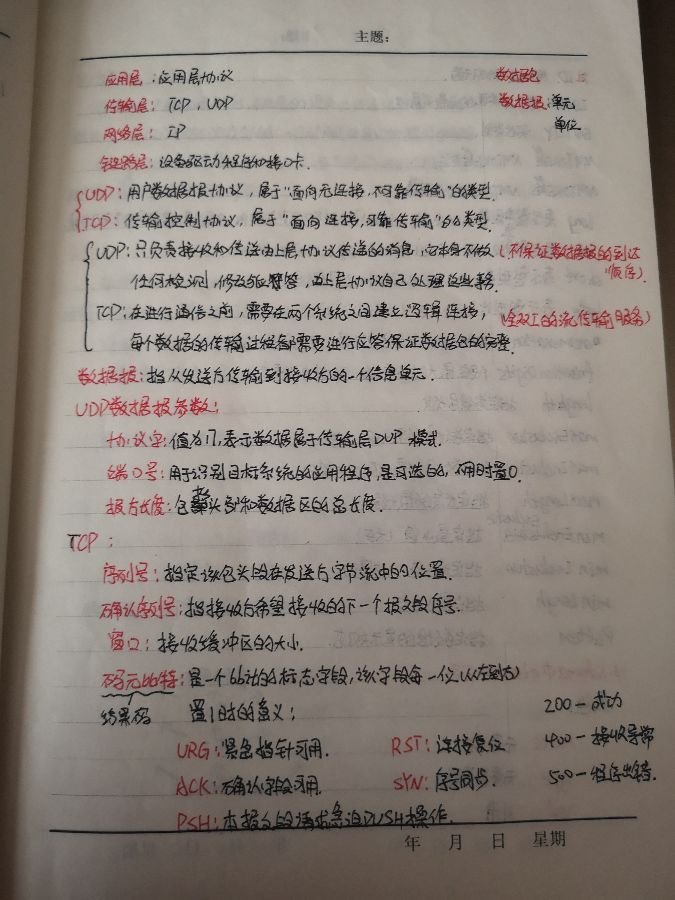 主题：
应用层：应用层协议 数据包
传输层：TCP，UDP 数据报：单元
网络层：IP 单位
链路层：设备驱动程序和接口卡.
UDP：用户数据报协议，属于“面向无连接，不可靠传输”的类型.
TCP：传输控制协议，属于“面向连接，可靠传输”的类型.
UDP：只负责接收和传送由上层协议传递的消息，它本身不做（不保证数据报的到达
任何检测，修改或应答，由上层协议自己处理这些事务. 顺序）.
TCP：在进行通信之前，需要在两个系统之间建立逻辑连接，（全双工的流传输服务）
每个数据的传输过程都需要进行应答保证数据包的完整.
数据报：指从发送方传输到接收方的一个信息单元.
UDP数据报参数：
协议字：值为17，表示数据属于传输层DUP模式.
端口号：用于识别目标系统的应用程序，是可选的，不用时置0.
报方长度：包头部和数据区的总长度.
TCP：
序列号：指定该包头段在发送方字节流中的位置.
确认序列号：指接收方希望接收的下一个报文段序号.
窗口：接收缓冲区的大小.
码元比特：是一个6bit的标志字段，该字段每一位（从左到右）
结果码 置1时的意义： 200—成功
URG：紧急指针可用. RST：连接复位 400—接收异常
ACK：确认字段可用. SYN：序号同步. 500—程序出错.
PSH：本报文段请求急迫PUSH操作.
年 月 日 星期